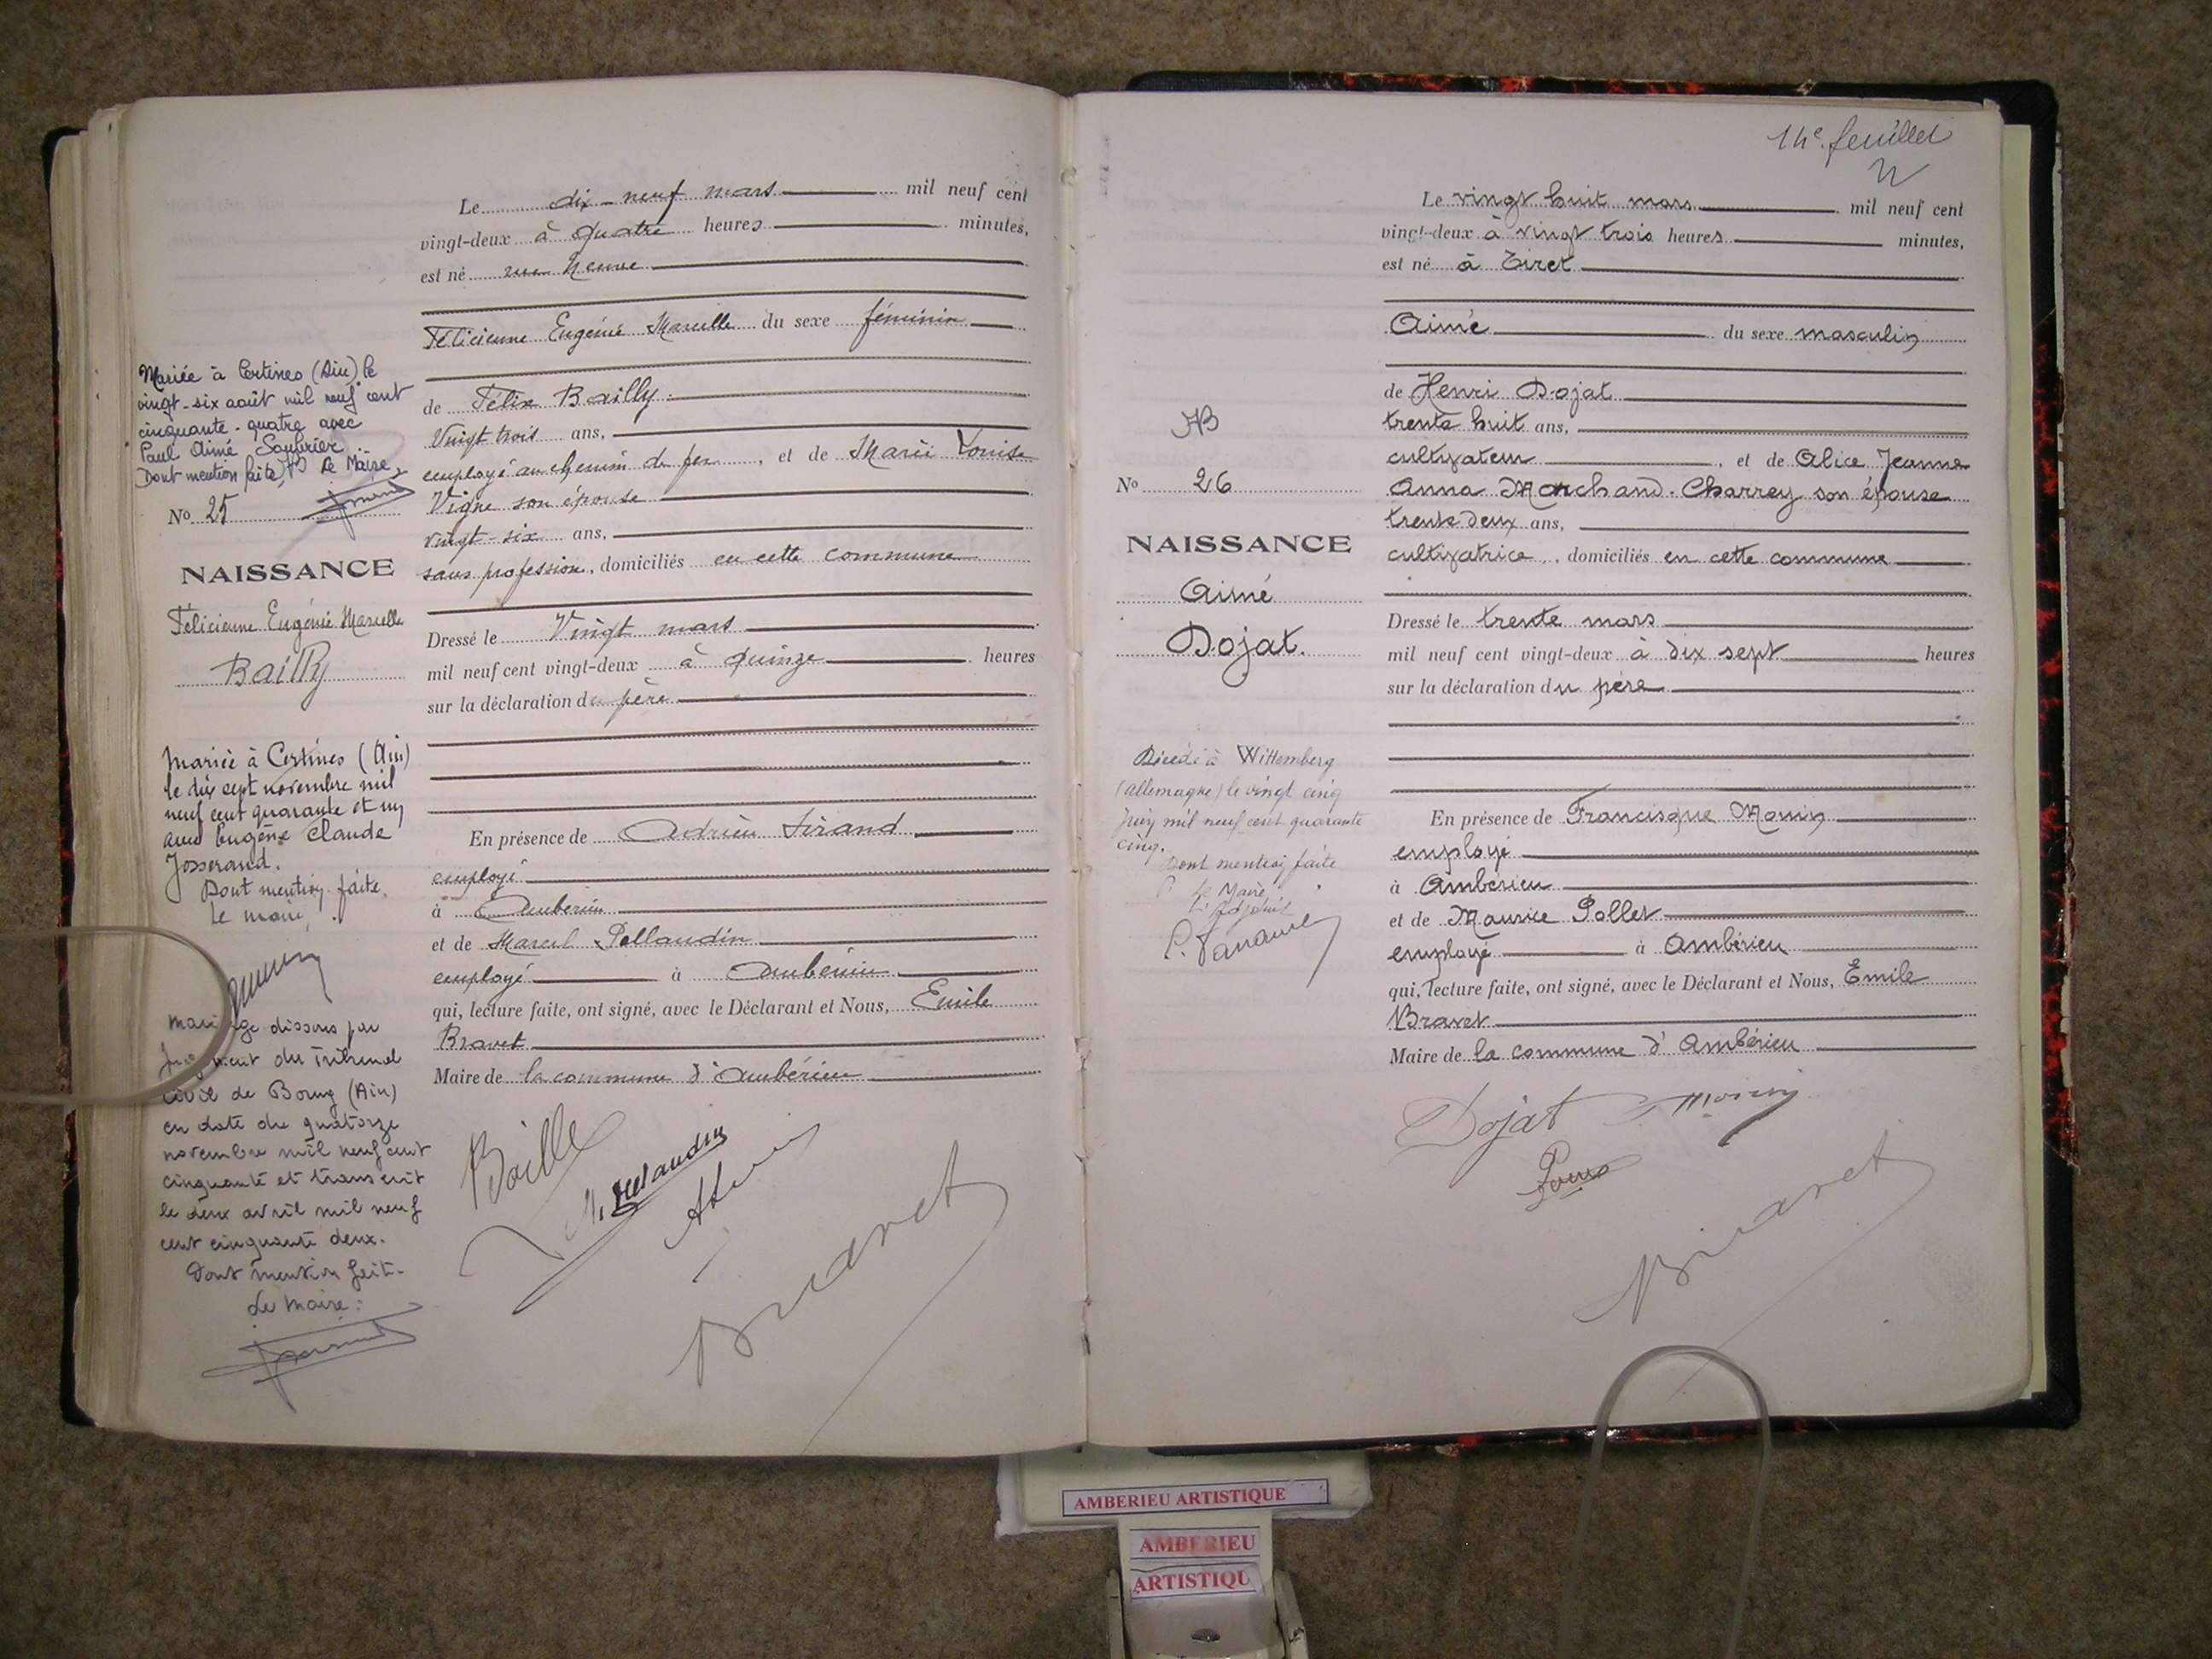 Le dix-neuf mars mil neuf cent
vingt-deux à quatre heures minutes,
est né rue Neuve
Félicienne Eugénie Marcelle du sexe féminin
de Félix Bailly
Vingt trois ans,
employé au chemin de fer, et de Marie Louise
Vigne son épouse
vingt-six ans,
sans profession, domiciliés en cette commune
Dressé le Vingt mars
mil neuf cent vingt-deux à quinze heures
sur la déclaration du père
En présence de Adrien Sirand
employé
à Ambérieu
et de Marcel Pellaudin
employé à Ambérieu
qui, lecture faite, ont signé, avec le Déclarant et Nous, Emile
Bravet
Maire de la commune d'Ambérieu
Bravet
Mariée à Certines (Ain) le
vingt-six août mil neuf cent
cinquante-quatre avec
Paul Aimé
Dont mention faite, Le Maire,
No 25
NAISSANCE
Félicienne Eugénie Marcelle
Bailly
Mariée à Certines (Ain)
le dix sept novembre mil
neuf cent quarante et un
avec Eugène Claude
Josserand.
Dont mention faite.
Le maire,
Mariage dissous par
jugement du Tribunal
civil de Bourg (Ain)
en date du quatorze
novembre mil neuf cent
cinquante et transcrit
le deux avril mil neuf
cent cinquante deux.
Dont mention faite.
Le Maire:
14e feuillet
Le vingt huit mars mil neuf cent
vingt-deux à vingt trois heures minutes,
est né à Tiret
Aimé du sexe masculin
de Henri Dojat
trente huit ans,
cultivateur, et de Alice Jeanne
Anna Marchand-Charrey son épouse
trente deux ans,
cultivatrice, domiciliés en cette commune
Dressé le trente mars
mil neuf cent vingt-deux à dix sept heures
sur la déclaration du père
En présence de Francisque Monin
employé
à Ambérieu
et de Maurice Pollet
employé à Ambérieu
qui, lecture faite, ont signé, avec le Déclarant et Nous, Emile
Bravet
Maire de la commune d'Ambérieu
Dojat
Bravet
No 26
NAISSANCE
Aimé
Dojat.
Décédé à Wittemberg
(Allemagne) le vingt cinq
juin mil neuf cent quarante
cinq.
Dont mention faite
Le Maire
L'Adjoint
AMBERIEU ARTISTIQUE
AMBERIEU
ARTISTIQU